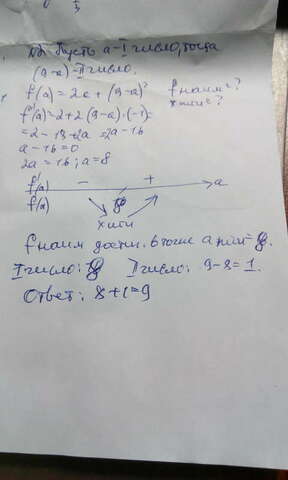 Пусть a - I число, тогда
(9-a) - II число.
f(a) = 2a + (9-a)²
f наим = ?
x min = ?
f'(a) = 2 + 2(9-a)·(-1) =
= 2 - 18 + 2a = 2a - 16
a - 16 = 0
2a = 16; a = 8
f'(a) - + a
f(a) 8
x min
f наим дости. в точке a min = 8.
I число: 8 II число: 9-8=1.
Ответ: 8+1=9